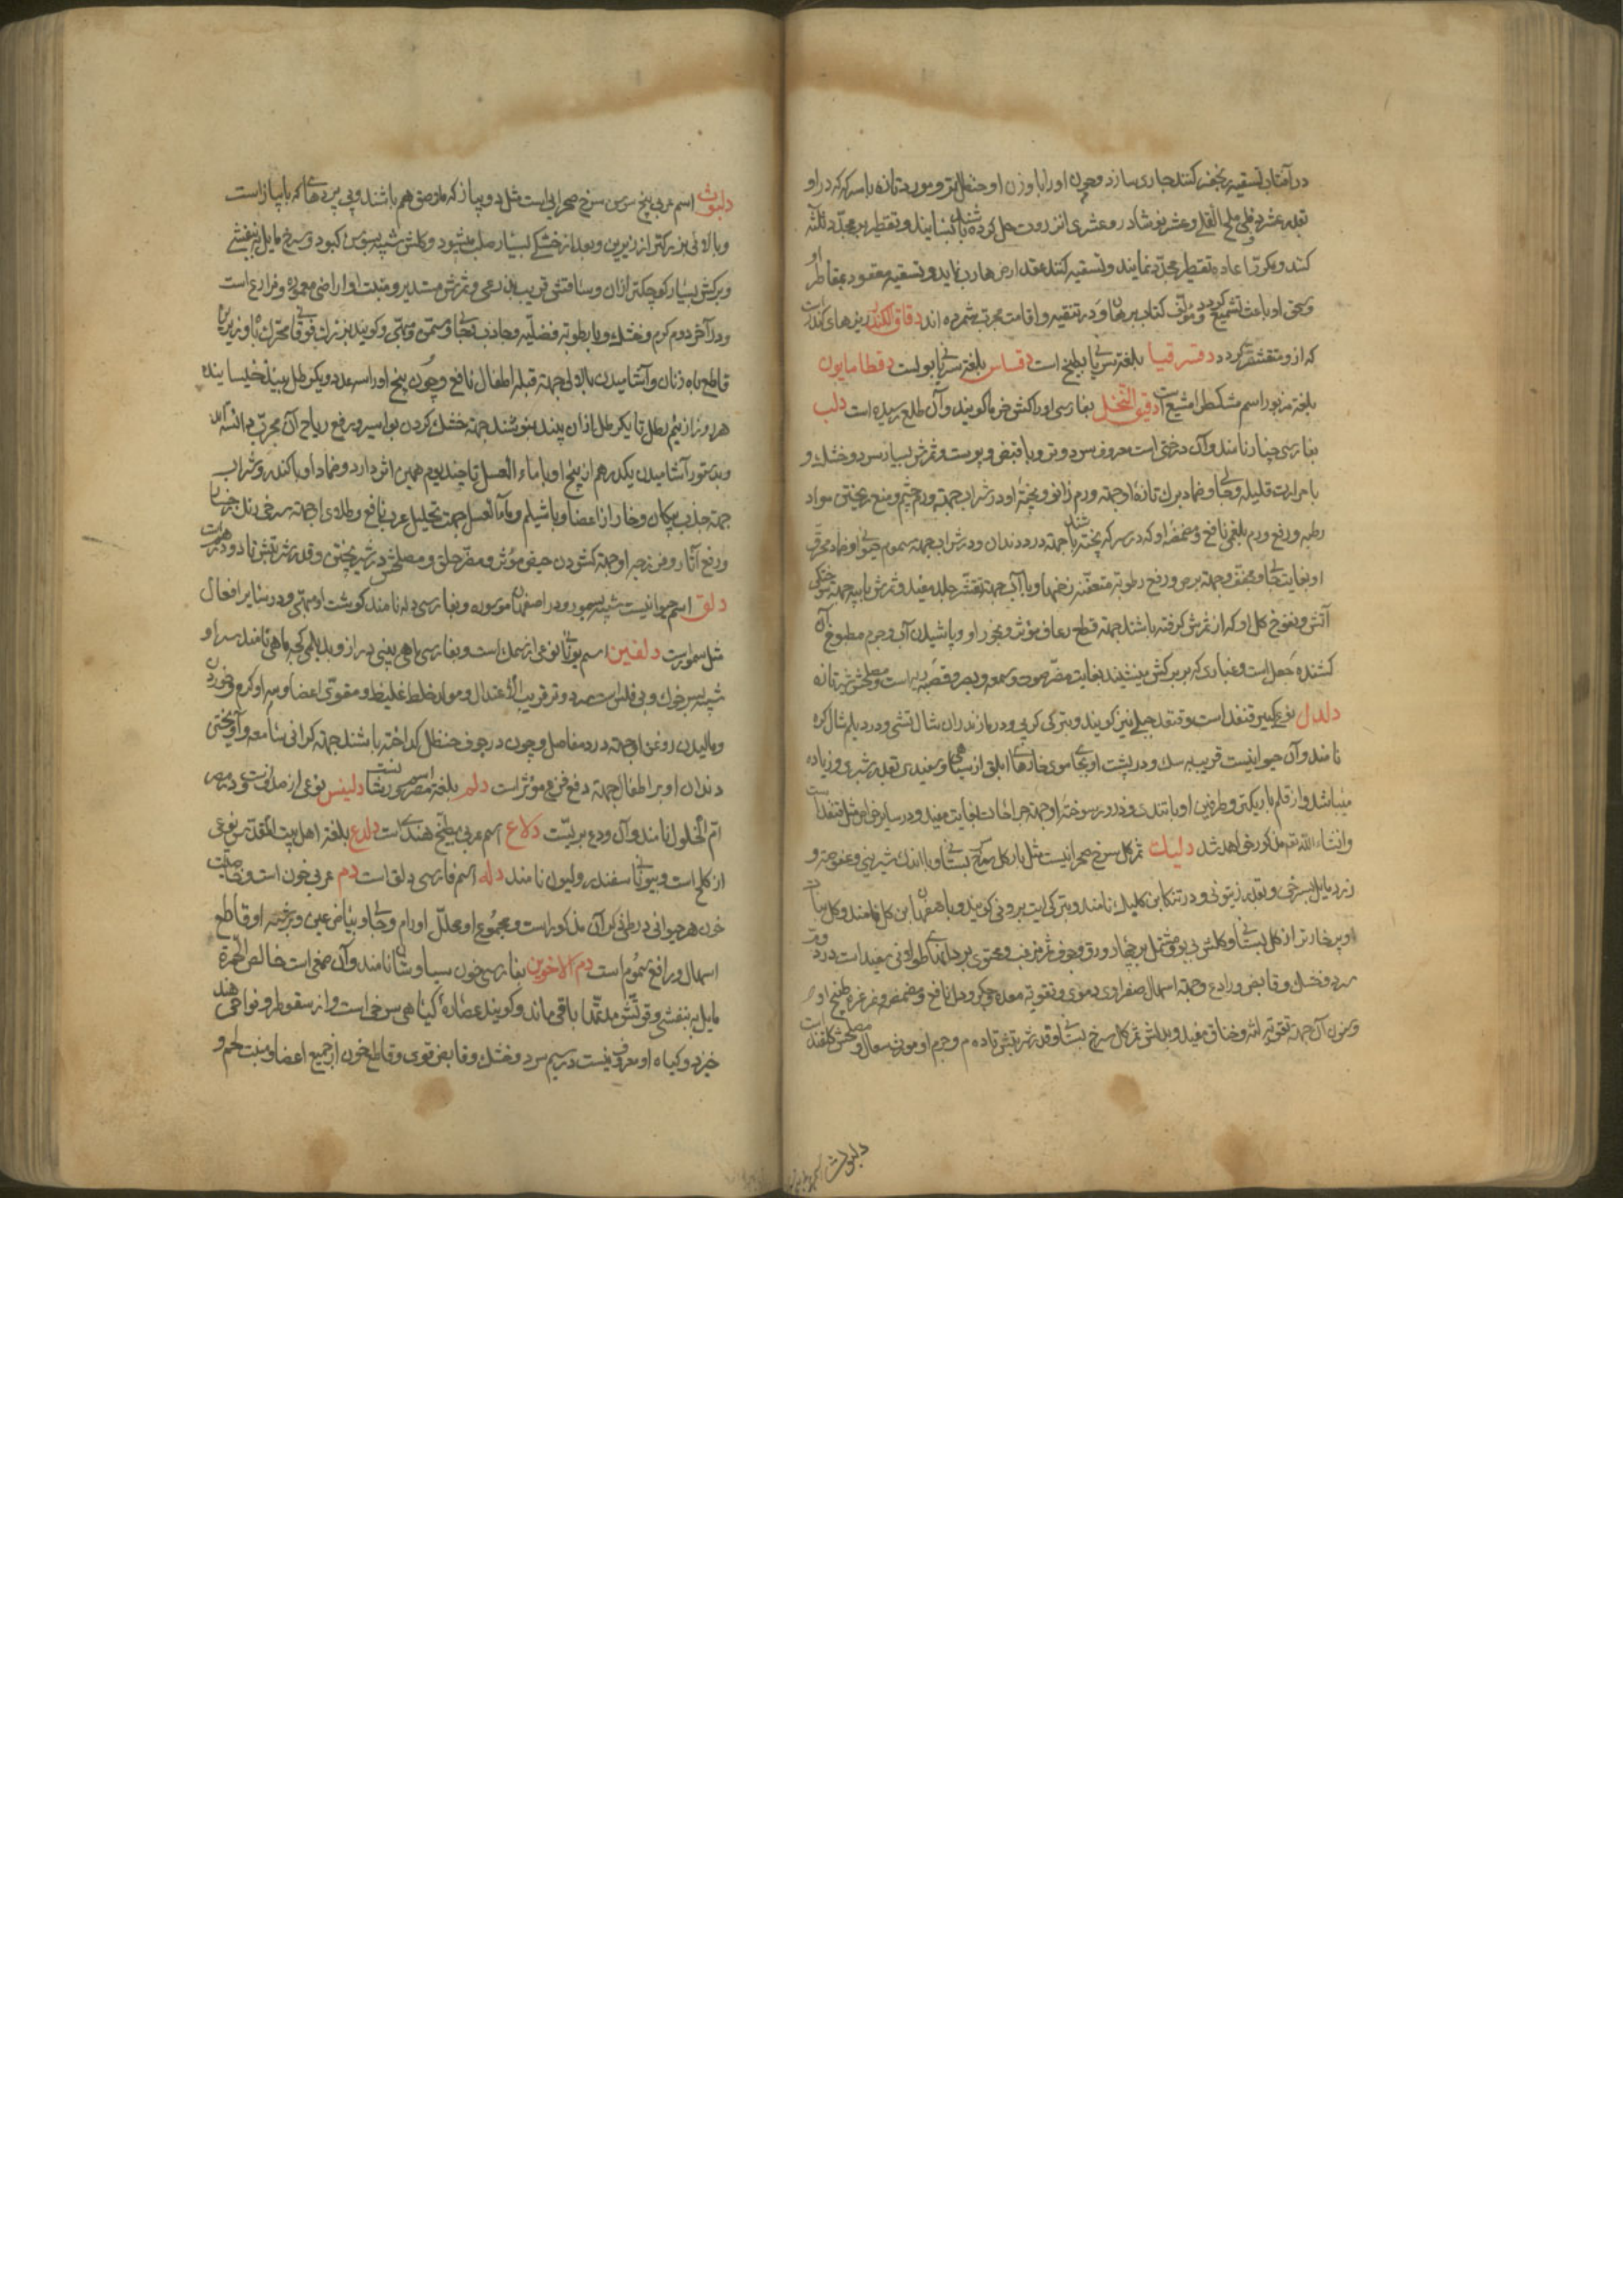 در آفتاب تسقیه و تجفیف کنند جاری سازد و چون او را با وزن او حنظل تر و مورد تازه با سرکه که در او
بقدر عشر و قلی ملح القلی و عشر نوشادر و عشری انزروت حل کرده باشند بسایند و تقطیر
کنند و مکرر اعاده تقطیر مجدد نمایند و تسقیه کنند عقد
و مؤلف کتاب برهان او در تنقیه و اقامت مجرب شمرده اند دقاق الکندر ریزهای کندر است
که از و متقشر گردد دقسرقیا بلغة سریانی بطیخ است دقساس بلغة سریانی بولست دقطامایون
بلغة مزبور اسم مشکطرامشیع است دقیق النخل بفارسی او را کش خرما گویند و آن طلع رسیده است دلب
بفارسی چنار نامند و آن درختی است معروف سرد و تر و با قبض و پوست و ثمرش بسیار سرد و خشک و
با حرارت قلیله و جالی و ضماد برک تازهٔ او جهة ورم زانو و پختهٔ او در شراب جهة ورم چشم و منع ریختن مواد
رطبه و رفع ورم بلغمی نافع و مضمضهٔ او که در سرکه پخته باشند جهة درد دندان و در شراب جهة سموم حیوانی و ضماد محرق
او بغایت جالی و مجفف و جهة برص و رفع رطوبة متعفنهٔ زخمها و با آب جهة تقشر جلد مفید و ثمرش با پیه جهة سوختگی
آتش و نفوخ گل او که از ثمرش گرفته باشند جهة قطع رعاف مؤثر و بخور او و پاشیدن آب و جرم مطبوخ آن
کشندهٔ جعل است و غباری که بر برگش مینشیند بغایت مضر صوت و سمع و بصر و قصبهٔ ریه است و مصلحش شیر تازه
دلدل نوع کبیر قنفذ است و قنفذ جبلی نیز گویند و بترکی کرپی و در مازندران شال تشی و در دیلم
نامند و آن حیوانیست قریب به سگ و در پشت او بجای موی خارهای ابلق از سیاهی و سفیدی بقدر شبری و زیاده
میباشد و از قلم باریکتر و طرفین او با تندی و ذرور سوختهٔ او جهة جراحات بغایت مفید و در سایر خواص مثل قنفذ است
و انشاءالله تعم مذکور خواهد شد دلیک ثمر گل سرخ صحرائیست مثل بار گل سرخ بستانی و با اندک شیرینی و عفوصة و
زرد مایل بسرخی و بقدر زیتونی و در تنکابن کلیک نامند و بترکی ایت برونی گویند و باصفهان ابن گل نامند و گل نبات
او پر خارتر از گل بستانی و گلش بی بو و مشتمل بر چهار ورق و جوف ثمرش مزغب و محتوی بر دانهای طولانی سفید است در دوم
سرد و خشک و قابض و رادع و جهة اسهال صفراوی و دموی و تقویة معده و جگر و دل نافع و مضمضه و غرغره طبیخ او
و سنون آن جهة تقویة لثه و خناق مفید و بدلش ثمر گل سرخ بستانی و قدر شربتش تا ده م و جرم او مورث سعال و مصلحش گلقند است
دلبوث اسم عربی
دلبوث اسم عربی بیخ سوسن سرخ صحرایی است مثل دو پیاز که ملاصق هم باشند و بی پردهای که با پیاز است
و بالائی بزرگتر از زیرین و بعد از خشکی بسیار صلب میشود و گلش شبیه بسوسن کبود و سرخ مایل ببنفشی
و برگش بسیار کوچکتر از آن و ساقش قریب بذرعی و ثمرش مستدیر و منبت او اراضی معموره و مزارع است
و در آخر دوم گرم و خشک و با رطوبة فضلیه و جاذب و جالی و مسمن و مبهی و گویند بزرگ فوقانی محرک باه و زیرین
قاطع باه زنان و آشامیدن بالائی جهة قیلهٔ اطفال نافع و چون بیخ او را سه عدد و یکرطل نبیذ خیسانیده
هر روز از نیم رطل تا یکرطل از آن نبیذ بنوشند جهة خشک کردن بواسیر و رفع ریاح آن مجرب دانسته اند
و بدستور آشامیدن یکدرهم از بیخ او با ماء العسل تا چند یوم همین اثر دارد و ضماد او با کندر و شراب
جهة جذب پیکان و خار از اعضا و با شیلم و ماء العسل جهت تحلیل غرب نافع و طلای او جهة سرخی رنگ رخسار
و رفع آثار و فرزجهٔ او جهة گشودن حیض مؤثر و مضر حلق و مصلحش در شیر پختن و قدر شربتش تا دو درهمست
دلق اسم حیوانیست شبیه بسمور و در اصفهان موسوره و بفارسی دله نامند گوشت او مبهی و در سایر افعال
مثل سمور است دلفین اسم یونانی نوعی از سمک است و بفارسی ماهی بینی دراز و بدیلمی کجه ماهی نامند سر او
شبیه بسر خوک و بی فلس است سرد و تر قریب الاعتدال و مولد خلط غلیظ و مقوی اعضا و پیه او گرم و خوردن
و مالیدن روغن او جهة درد مفاصل و چون در جوف حنظل گداخته باشند جهة گرانی سامعه و آویختن
دندان او بر اطفال جهة دفع فزع مؤثر است دلم بلغة مصر اسم دلینس نوعی از صدفست و در مصر
ام الخلول نامند و آن ودع بریست دلاع اسم عربی بطیخ هندی است دلدع بلغة اهل بیت المقدس نوعی
از کلخ است و بیونانی سفندیرولیون نامند دله اسم فارسی دلق است دم عربی خون است و خاصیت
خون هر حیوانی در طی ذکر آن مذکور است و مجموع او محلل اورام و جالی و بیاض عین و برشتهٔ او قاطع
اسهال و رافع سموم است دم الاخوین بفارسی خون سیاوشان نامند و آن صمغی است خالص الحمرة
مایل به بنفشی و قوتش مدتها باقی ماند و گویند عصارهٔ گیاهی سرخی است و از سقوطره و نواحی هند
خیزد و گیاه او معروف نیست در سیم سرد و خشک و قابض قوی و قاطع خون از جمیع اعضا و منبت لحم و